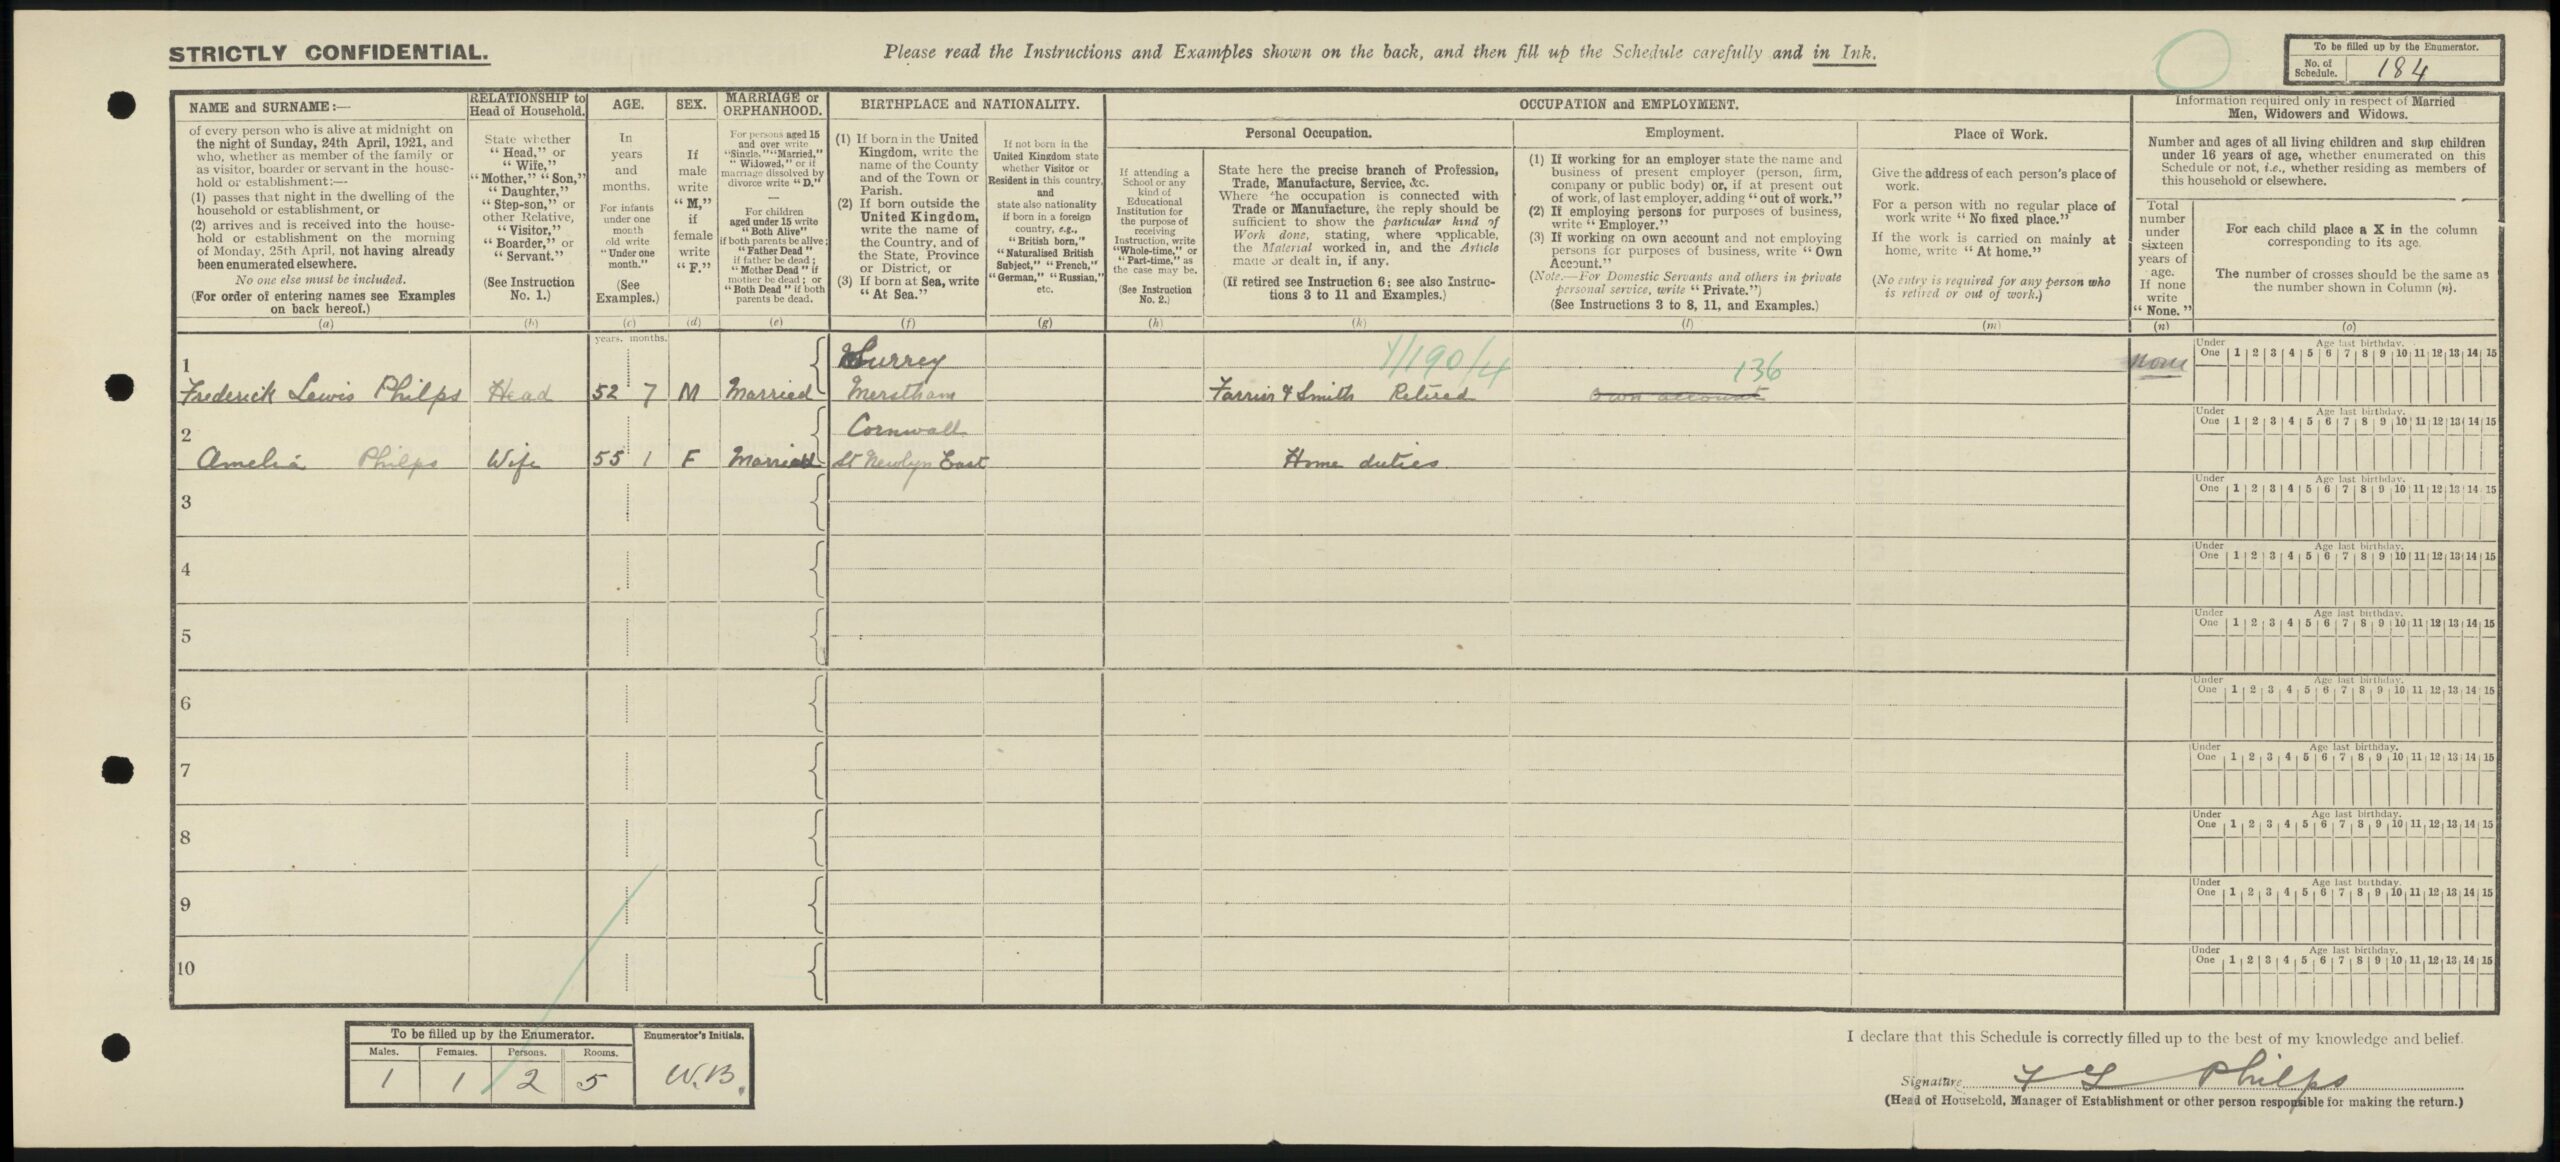 STRICTLY CONFIDENTIAL.
Please read the Instructions and Examples shown on the back, and then fill up the Schedule carefully and in Ink.
To be filled up by the Enumerator.
No. of Schedule. 184
NAME and SURNAME:—
of every person who is alive at midnight on
the night of Sunday, 24th April, 1921, and
who, whether as member of the family or
as visitor, boarder or servant in the house-
hold or establishment:—
(1) passes that night in the dwelling of the
household or establishment, or
(2) arrives and is received into the house-
hold or establishment on the morning
of Monday, 25th April, not having already
been enumerated elsewhere.
No one else must be included.
(For order of entering names see Examples
on back hereof.)
(a)
RELATIONSHIP to
Head of Household.
State whether
"Head," or
"Wife,"
"Mother," "Son,"
"Daughter,"
"Step-son," or
other Relative,
"Visitor,"
"Boarder," or
"Servant."
(See Instruction
No. 1.)
(b)
AGE.
In
years
and
months.
For infants
under one
month
old write
"Under one
month."
(See
Examples.)
(c)
SEX.
If
male
write
"M,"
if
female
write
"F."
(d)
MARRIAGE or
ORPHANHOOD.
For persons aged 15
and over write
"Single," "Married,"
"Widowed," or if
marriage dissolved by
divorce write "D."
—
For children
aged under 15 write
"Both Alive"
if both parents be alive;
"Father Dead"
if father be dead;
"Mother Dead" if
mother be dead; or
"Both Dead" if both
parents be dead.
(e)
BIRTHPLACE and NATIONALITY.
(1) If born in the United
Kingdom, write the
name of the County
and of the Town or
Parish.
(2) If born outside the
United Kingdom,
write the name of
the Country, and of
the State, Province
or District, or
(3) If born at Sea, write
"At Sea."
(f)
If not born in the
United Kingdom state
whether Visitor or
Resident in this country,
and
state also nationality
if born in a foreign
country, e.g.,
"British born,"
"Naturalised British
Subject," "French,"
"German," "Russian,"
etc.
(g)
OCCUPATION and EMPLOYMENT.
If attending a
School or any
kind of
Educational
Institution for
the purpose of
receiving
Instruction, write
"Whole-time," or
"Part-time," as
the case may be.
(See Instruction
No. 2.)
(h)
Personal Occupation.
State here the precise branch of Profession,
Trade, Manufacture, Service, &c.
Where the occupation is connected with
Trade or Manufacture, the reply should be
sufficient to show the particular kind of
Work done, stating, where applicable,
the Material worked in, and the Article
made or dealt in, if any.
(If retired see Instruction 6; see also Instruc-
tions 3 to 11 and Examples.)
(k)
Employment.
(1) If working for an employer state the name and
business of present employer (person, firm,
company or public body) or, if at present out
of work, of last employer, adding "out of work."
(2) If employing persons for purposes of business,
write "Employer."
(3) If working on own account and not employing
persons for purposes of business, write "Own
Account."
(Note.—For Domestic Servants and others in private
personal service, write "Private.")
(See Instructions 3 to 8, 11, and Examples.)
(l)
Place of Work.
Give the address of each person's place of
work.
For a person with no regular place of
work write "No fixed place."
If the work is carried on mainly at
home, write "At home."
(No entry is required for any person who
is retired or out of work.)
(m)
Information required only in respect of Married
Men, Widowers and Widows.
Number and ages of all living children and step children
under 16 years of age, whether enumerated on this
Schedule or not, i.e., whether residing as members of
this household or elsewhere.
Total
number
under
sixteen
years of
age.
If none
write
"None."
(n)
For each child place a X in the column
corresponding to its age.
The number of crosses should be the same as
the number shown in Column (n).
(o)
years. months.
1 Surrey Y/190/4 136 None
Frederick Lewis Philps Head 52 7 M Married Merstham Farrier & Smith Retired Own account
Under One Age last birthday. 1 2 3 4 5 6 7 8 9 10 11 12 13 14 15
2 Cornwall
Amelia Philps Wife 55 1 F Married St Newlyn East Home duties
Under One Age last birthday. 1 2 3 4 5 6 7 8 9 10 11 12 13 14 15
3 Under One Age last birthday. 1 2 3 4 5 6 7 8 9 10 11 12 13 14 15
4 Under One Age last birthday. 1 2 3 4 5 6 7 8 9 10 11 12 13 14 15
5 Under One Age last birthday. 1 2 3 4 5 6 7 8 9 10 11 12 13 14 15
6 Under One Age last birthday. 1 2 3 4 5 6 7 8 9 10 11 12 13 14 15
7 Under One Age last birthday. 1 2 3 4 5 6 7 8 9 10 11 12 13 14 15
8 Under One Age last birthday. 1 2 3 4 5 6 7 8 9 10 11 12 13 14 15
9 Under One Age last birthday. 1 2 3 4 5 6 7 8 9 10 11 12 13 14 15
10 Under One Age last birthday. 1 2 3 4 5 6 7 8 9 10 11 12 13 14 15
To be filled up by the Enumerator.
Males. Females. Persons. Rooms.
1 1 2 5
Enumerator's Initials.
W.B.
I declare that this Schedule is correctly filled up to the best of my knowledge and belief.
Signature F L Philps
(Head of Household, Manager of Establishment or other person responsible for making the return.)